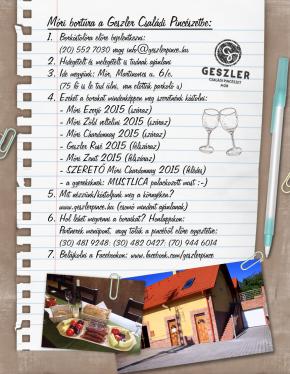 Móri bortúra a Geszler Családi Pincészetbe:
1. Borkóstolóra előre bejelentkezni:
(20) 552 7030 vagy info@geszlerpince.hu
2. Hidegételt és melegételt is tudnak ajánlani
3. Ide megyünk: Mór, Martinovics u. 6/c.
(75 fő is le tud ülni, van előttük parkoló is)
4. Ezeket a borokat mindenképpen meg szeretnénk kóstolni:
- Móri Ezerjó 2015 (száraz)
- Móri Zöld veltelini 2015 (száraz)
- Móri Chardonnay 2015 (száraz)
- Geszler Rosé 2015 (félszáraz)
- Móri Zenit 2015 (félszáraz)
- SZERETŐ Móri Chardonnay 2015 (félédes)
- a gyerekeknek: MUSTLICA palackozott must :-)
5. Mit nézzünk/kóstoljunk meg a környéken?
www.geszlerpince.hu (csomó mindent ajánlanak)
6. Hol lehet megvenni a borukat? Honlapjukon:
Partnerek menüpont, vagy tőlük a pincéből előre egyeztetve:
(30) 481 9248; (30) 482 0427; (70) 944 6014
7. Belájkolni a Facebookon: www.facebook.com/geszlerpince
GESZLER
CSALÁDI PINCÉSZET
MÓR